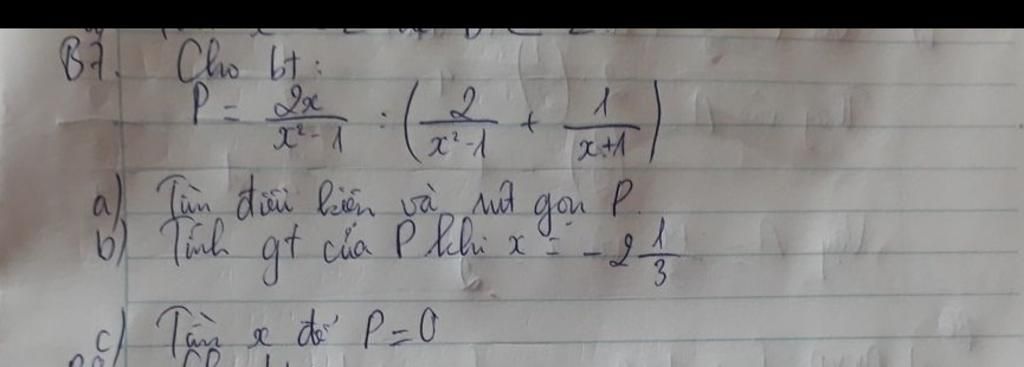 B7. Cho bt:
P = \frac{2x}{x²-1} : (\frac{2}{x²-1} + \frac{1}{x+1})
a) Tìm điều kiện và rút gọn P.
b) Tính gt của P khi x = -2\frac{1}{3}
c) Tìm x để P=0